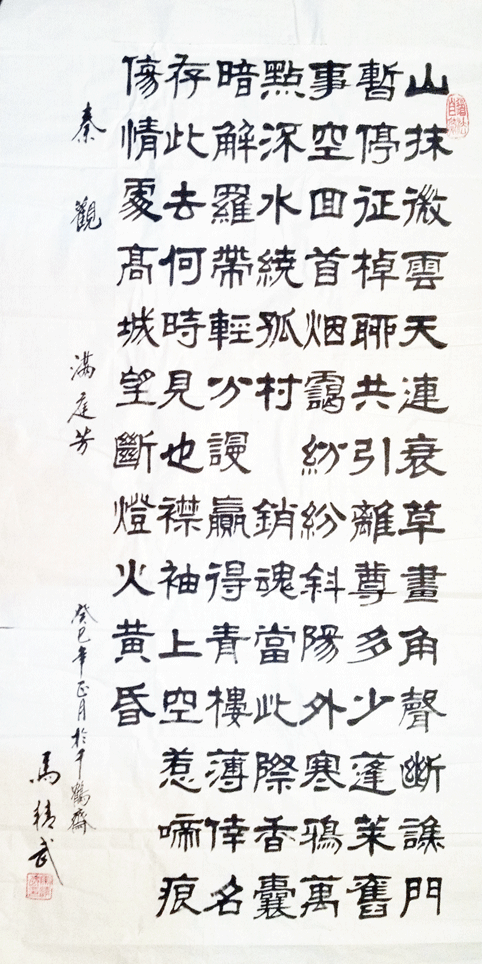 山抹微雲天連衰草畫角聲斷譙門
暫停征棹聊共引離尊多少蓬萊舊
事空回首烟靄紛紛斜陽外寒鴉萬
點深水繞孤村 銷魂當此際香囊
暗解羅帶輕分謾贏得青樓薄倖名
存此去何時見也襟袖上空惹啼痕
傷情處高城望斷燈火黃昏
秦觀 滿庭芳
癸巳年正月於千鶴齋
馬精武